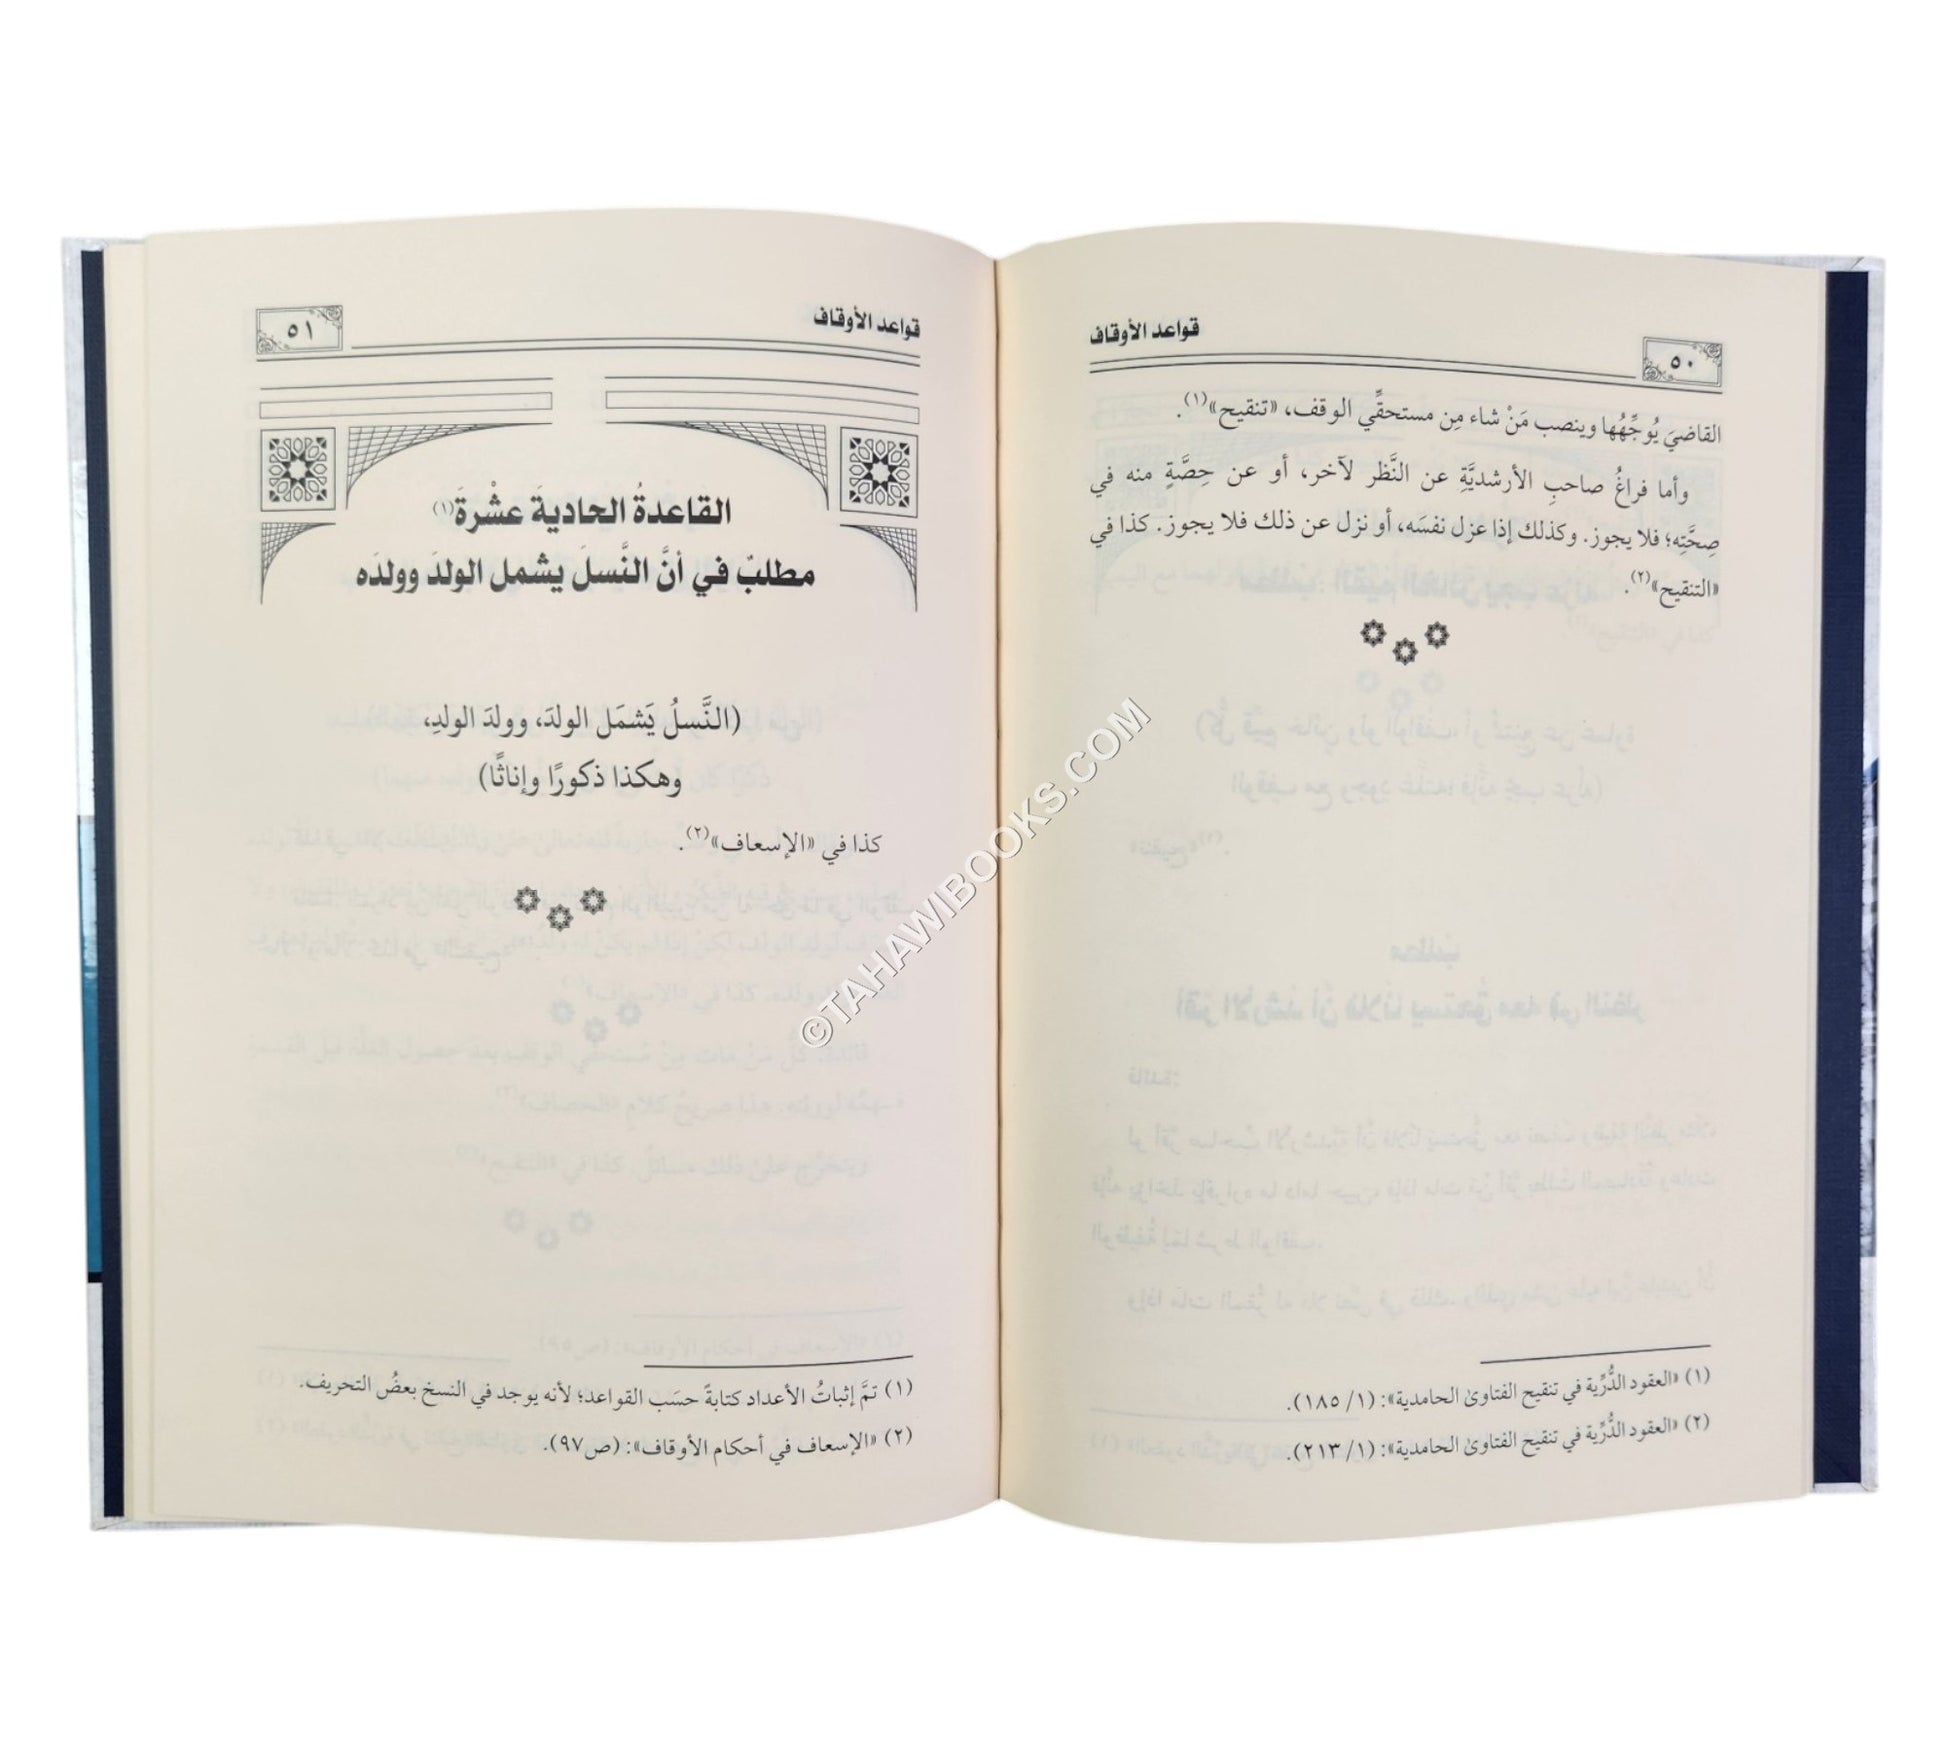 قواعد الأوقاف
٥٠
القاضيَ يُوجِّهُها وينصب مَنْ شاء مِن مستحقِّي الوقف، «تنقيح»(١).
وأما فراغُ صاحبِ الأرشديَّةِ عن النَّظر لآخر، أو عن حِصَّةٍ منه في
صِحَّتِه؛ فلا يجوز. وكذلك إذا عزل نفسَه، أو نزل عن ذلك فلا يجوز. كذا في
«التنقيح»(٢).
(١) «العقود الدُّرِّية في تنقيح الفتاوىٰ الحامدية»: (١/ ١٨٥).
(٢) «العقود الدُّرِّية في تنقيح الفتاوىٰ الحامدية»: (١/ ٢١٣).
قواعد الأوقاف
٥١
القاعدةُ الحاديةَ عشْرةَ(١)
مطلبٌ في أنَّ النَّسلَ يشمل الولدَ وولدَه
(النَّسلُ يَشمَل الولدَ، وولدَ الولدِ،
وهكذا ذكورًا وإناثًا)
كذا في «الإسعاف»(٢).
(١) تمَّ إثباتُ الأعداد كتابةً حسَب القواعد؛ لأنه يوجد في النسخ بعضُ التحريف.
(٢) «الإسعاف في أحكام الأوقاف»: (ص٩٧).
©TAHAWIBOOKS.COM